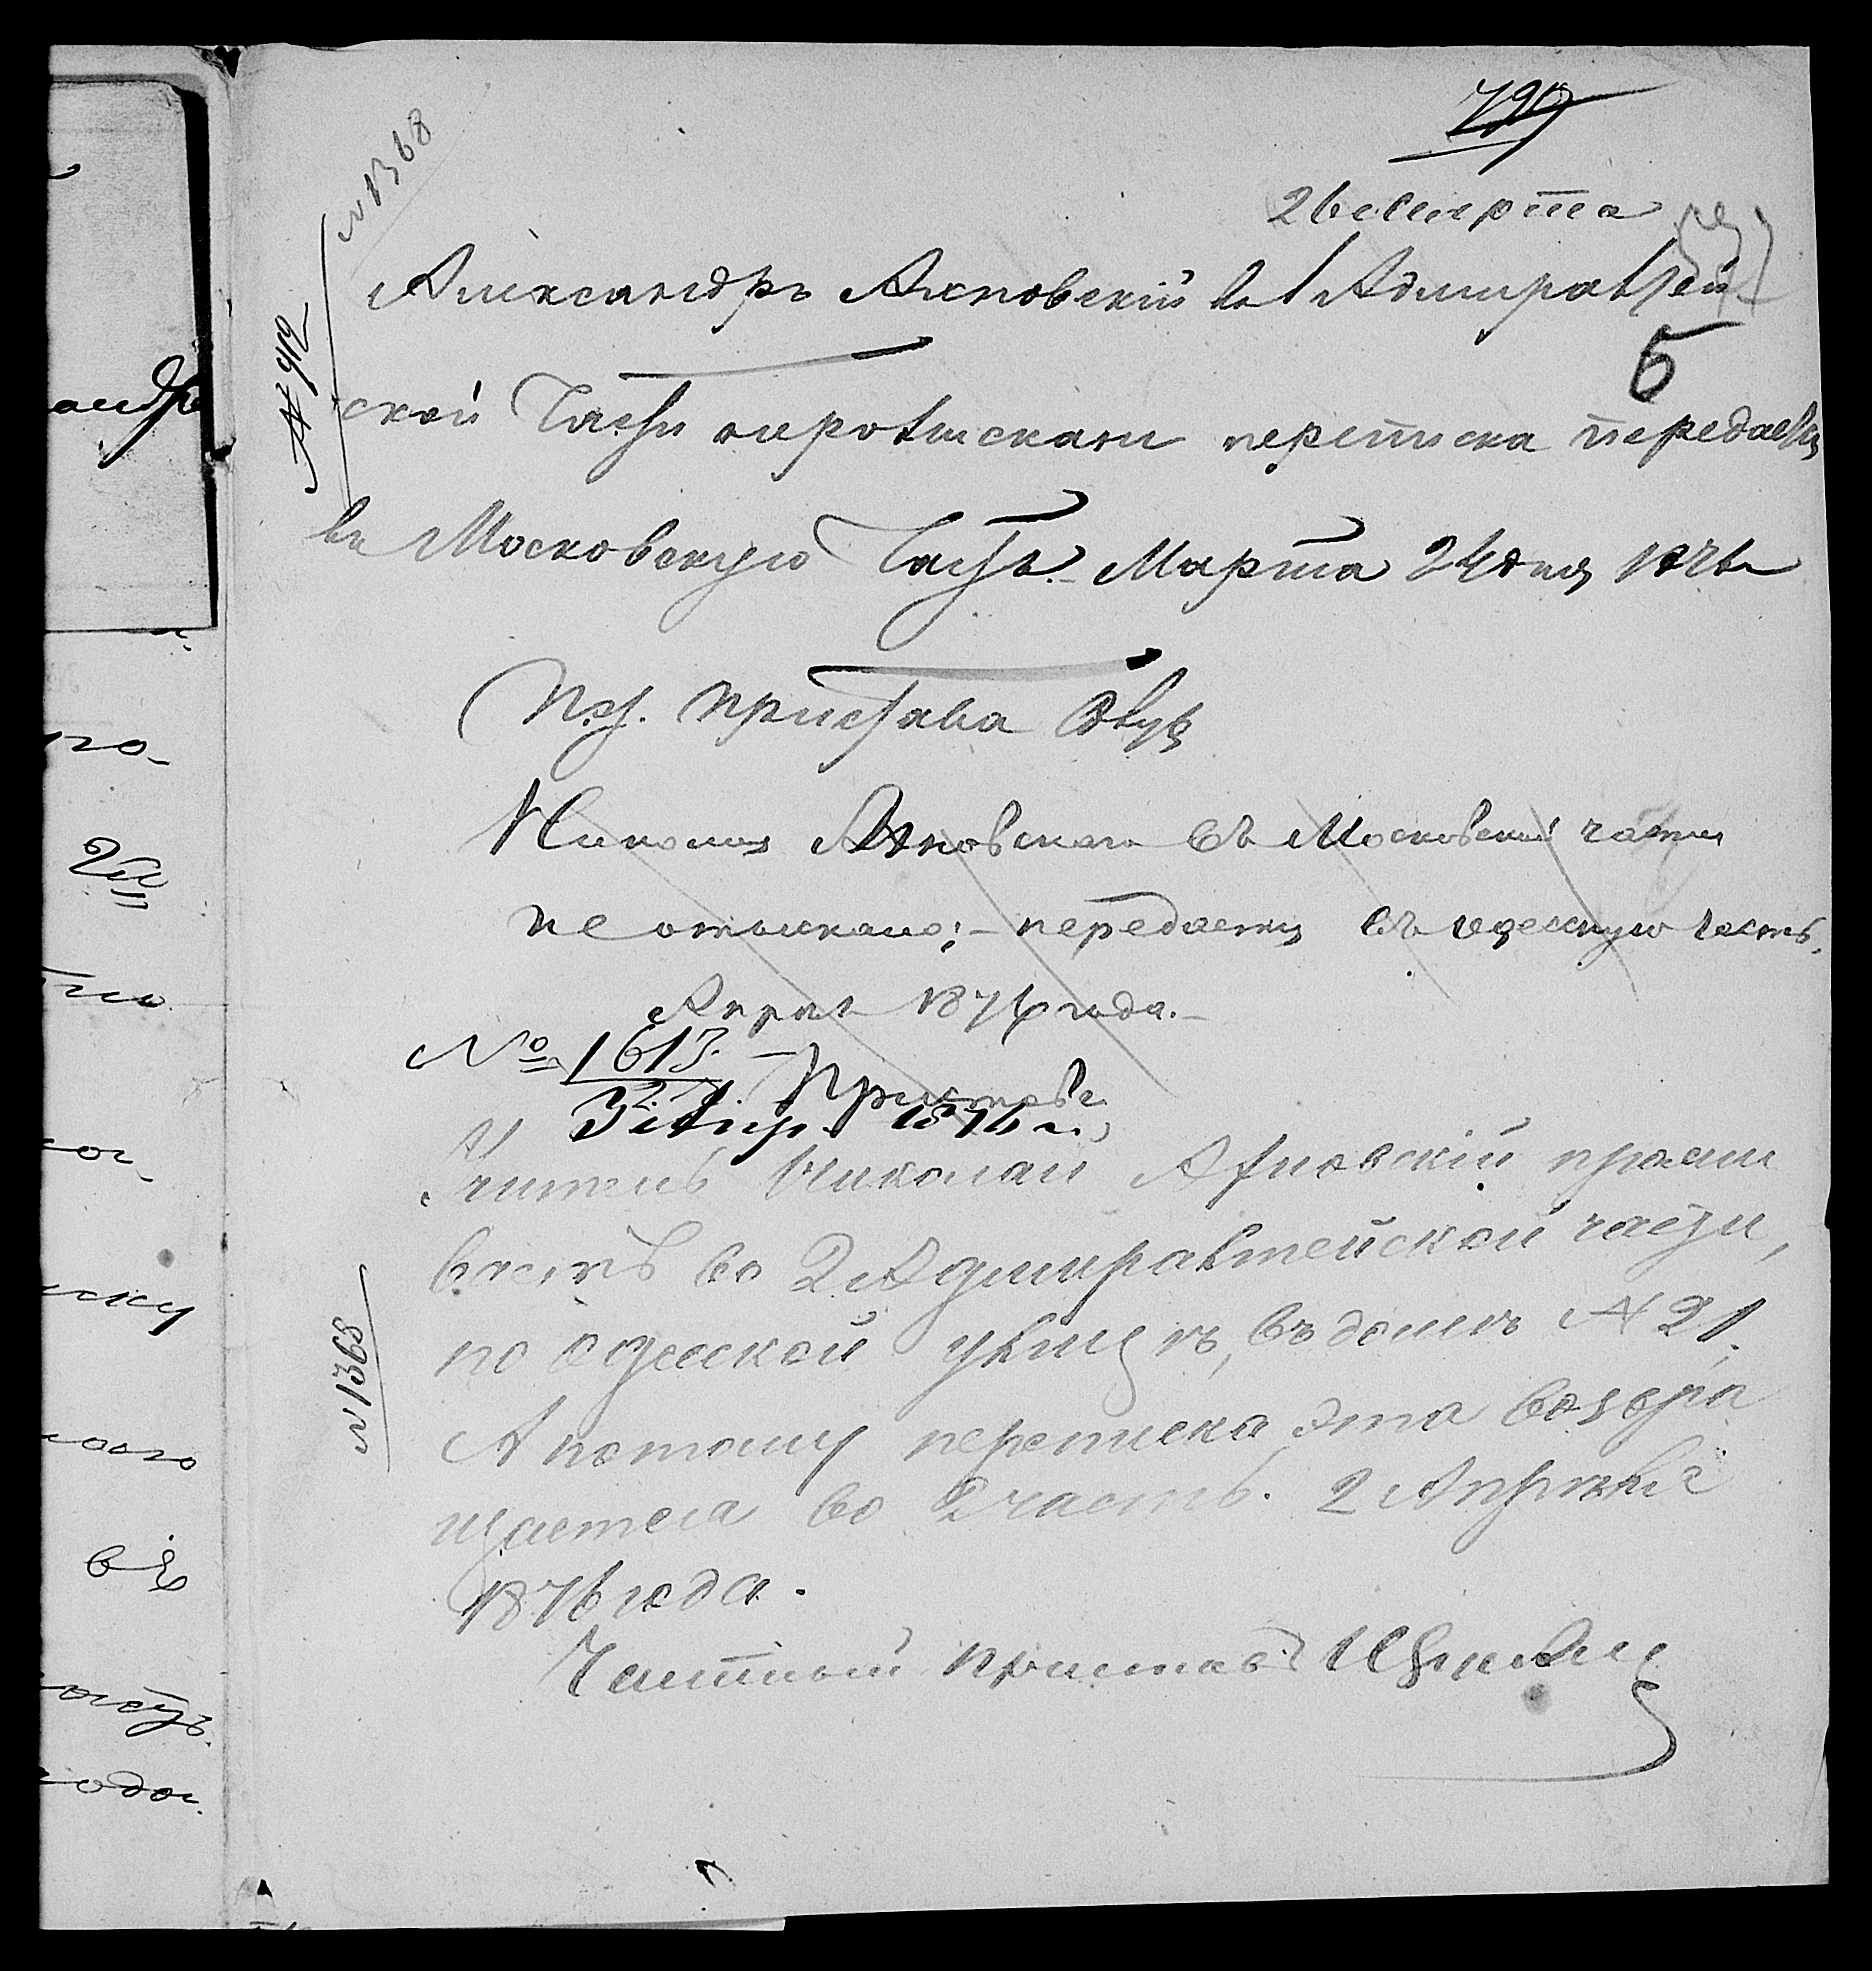 N 1368
2 Ген Марта
5
N 912
Александръ Ахновскій въ 1 Адмиралтей
ской Части неротысканъ переписка передается
въ Московскую Часть. Марта 24 дня 1876 г
И. д. Пристава
Николая Ахновскаго въ Московской части
не отыскано; – передается въ Одесскую часть.
Апрѣля 1876 года. –
№ 1613. –
Приставъ
3 Апр. 1876 г.
Учитель Николай Ахновскій прожи
ваетъ во 2 Адмиралтейской части,
по Одесской улицѣ, въ домѣ N 21.
N 1368
А потому переписка эта возвра
щается во 2 часть. 2 Апрѣля
1876 года.
Частный Приставъ